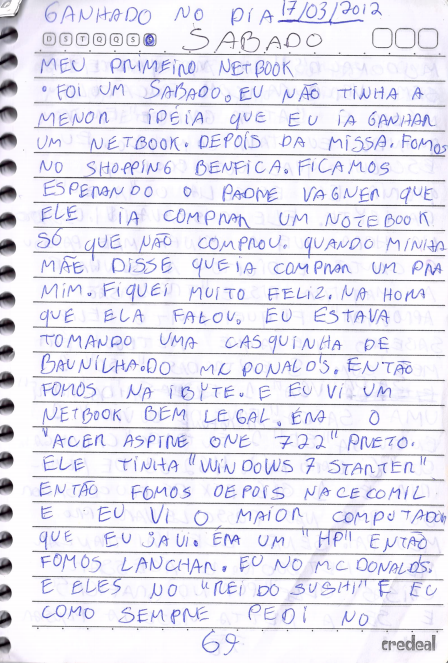 GANHADO NO DIA 17/03/2012
D S T Q Q S S SABADO
MEU PRIMEIRO NETBOOK
. FOI UM SABADO. EU NÃO TINHA A
MENOR IDÉIA QUE EU IA GANHAR
UM NETBOOK. DEPOIS DA MISSA. FOMOS
NO SHOPPING BENFICA. FICAMOS
ESPERANDO O PADRE VAGNER QUE
ELE IA COMPRAR UM NOTEBOOK
SÓ QUE NÃO COMPROU. QUANDO MINHA
MÃE DISSE QUE IA COMPRAR UM PRA
MIM. FIQUEI MUITO FELIZ. NA HORA
QUE ELA FALOU. EU ESTAVA
TOMANDO UMA CASQUINHA DE
BAUNILHA.DO MC DONALD'S. ENTÃO
FOMOS NA IBYTE. E EU VI UM
NETBOOK BEM LEGAL. ERA O
"ACER ASPIRE ONE 722" PRETO.
ELE TINHA "WINDOWS 7 STARTER"
ENTÃO FOMOS DEPOIS NA CECOMIL
E EU VI O MAIOR COMPUTADOR
QUE EU JA VI. ERA UM "HP" ENTÃO
FOMOS LANCHAR. EU NO MC DONALDS.
E ELES NO "REI DO SUSHI" E EU
COMO SEMPRE PEDI NO
69
credeal